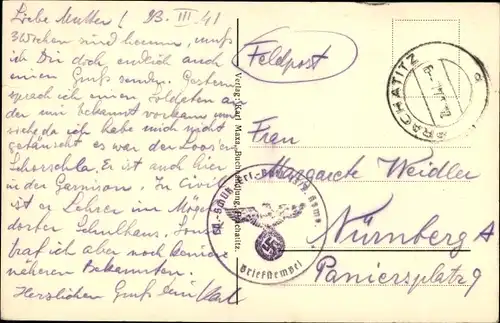 Liebe Mutter! 23. III. 41
Zwischen sind herum, muß
ich Dir doch endlich auch
einen Gruß senden. Gestern
sprach ich einen Soldaten an
der mir bekannt vorkam und
siehe da ich habe mich nicht
getäuscht es war der
Er ist auch hier
in der Garnison. In Civil
ist er Lehrer im Mögel
dorfer Schulhaus. Sonst
traf ich aber noch keinen
näheren Bekannten.
Herzlichen Gruß Dein Karl
Verlag: Karl Maxa, Buchhandlung, Prachatitz.
Feldpost
PRACHATITZ
Frau
Margarete Weidler
Nürnberg A
Paniersplatz 9
Briefstempel